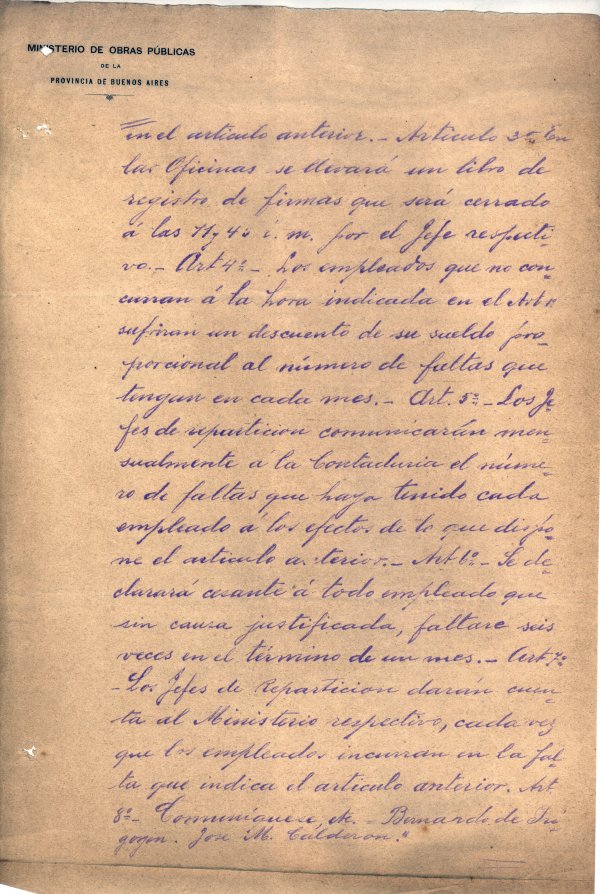 MINISTERIO DE OBRAS PÚBLICAS
DE LA
PROVINCIA DE BUENOS AIRES
en el articulo anterior.- Articulo 3º En
las Oficinas se llevará un libro de
registro de firmas que será cerrado
á las 11 y 40 i. m. por el Jefe respecti-
vo.- Art 4º- Los empleados que no con-
curran á la hora indicada en el Art
sufriran un descuento de su sueldo pro-
porcional al número de faltas que
tengan en cada mes.- Art. 5º- Los Je-
fes de reparticion comunicarán men-
sualmente á la Contaduria el núme-
ro de faltas que haya tenido cada
empleado á los efectos de lo que dispo-
ne el articulo anterior.- Art 6º- Se de-
clarará cesante á todo empleado que
sin causa justificada, faltare seis
veces en el término de un mes.- Art 7º
-Los Jefes de Reparticion darán cuen-
ta al Ministerio respectivo, cada vez
que los empleados incurran en la fal-
ta que indica el articulo anterior. Art
8º- Comuníquese, etc.- Bernardo de Iri-
goyen. José M. Calderon."